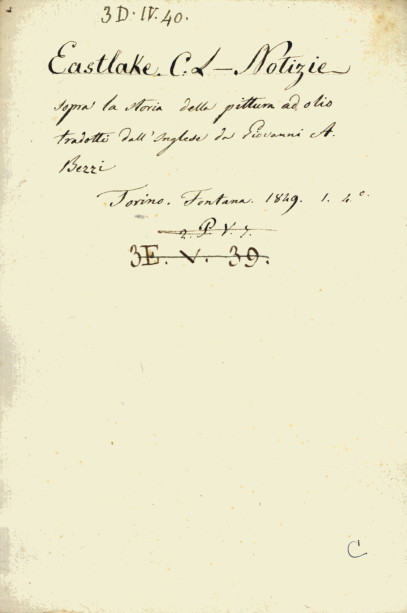 3 D. IV. 40.
Eastlake. C. L — Notizie
sopra la storia della pittura ad olio
tradotti dall'Inglese da Giovanni A.
Bezzi
Torino. Fontana. 1849. 1. 4°.
2. P. V. 7.
3E. V. 39.
C